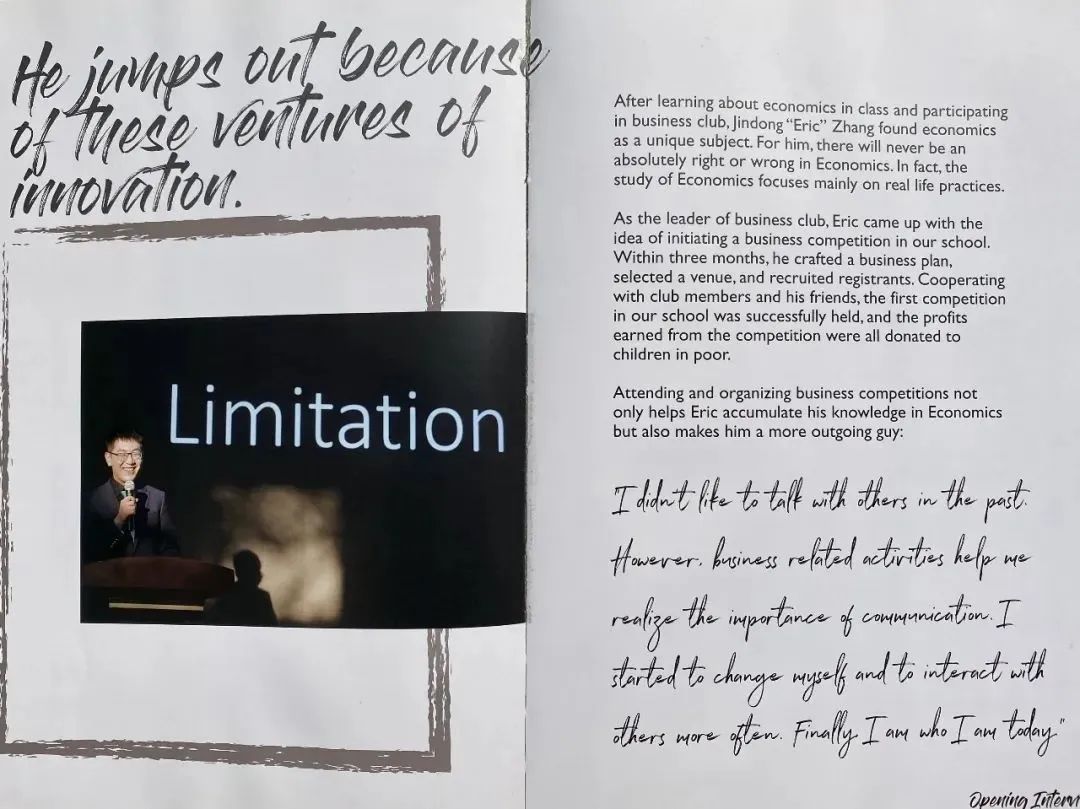 He jumps out because
of these ventures of
innovation.
Limitation
After learning about economics in class and participating
in business club, Jindong "Eric" Zhang found economics
as a unique subject. For him, there will never be an
absolutely right or wrong in Economics. In fact, the
study of Economics focuses mainly on real life practices.
As the leader of business club, Eric came up with the
idea of initiating a business competition in our school.
Within three months, he crafted a business plan,
selected a venue, and recruited registrants. Cooperating
with club members and his friends, the first competition
in our school was successfully held, and the profits
earned from the competition were all donated to
children in poor.
Attending and organizing business competitions not
only helps Eric accumulate his knowledge in Economics
but also makes him a more outgoing guy:
"I didn't like to talk with others in the past.
However, business related activities help me
realize the importance of communication. I
started to change myself and to interact with
others more often. Finally, I am who I am today."
Opening Interv